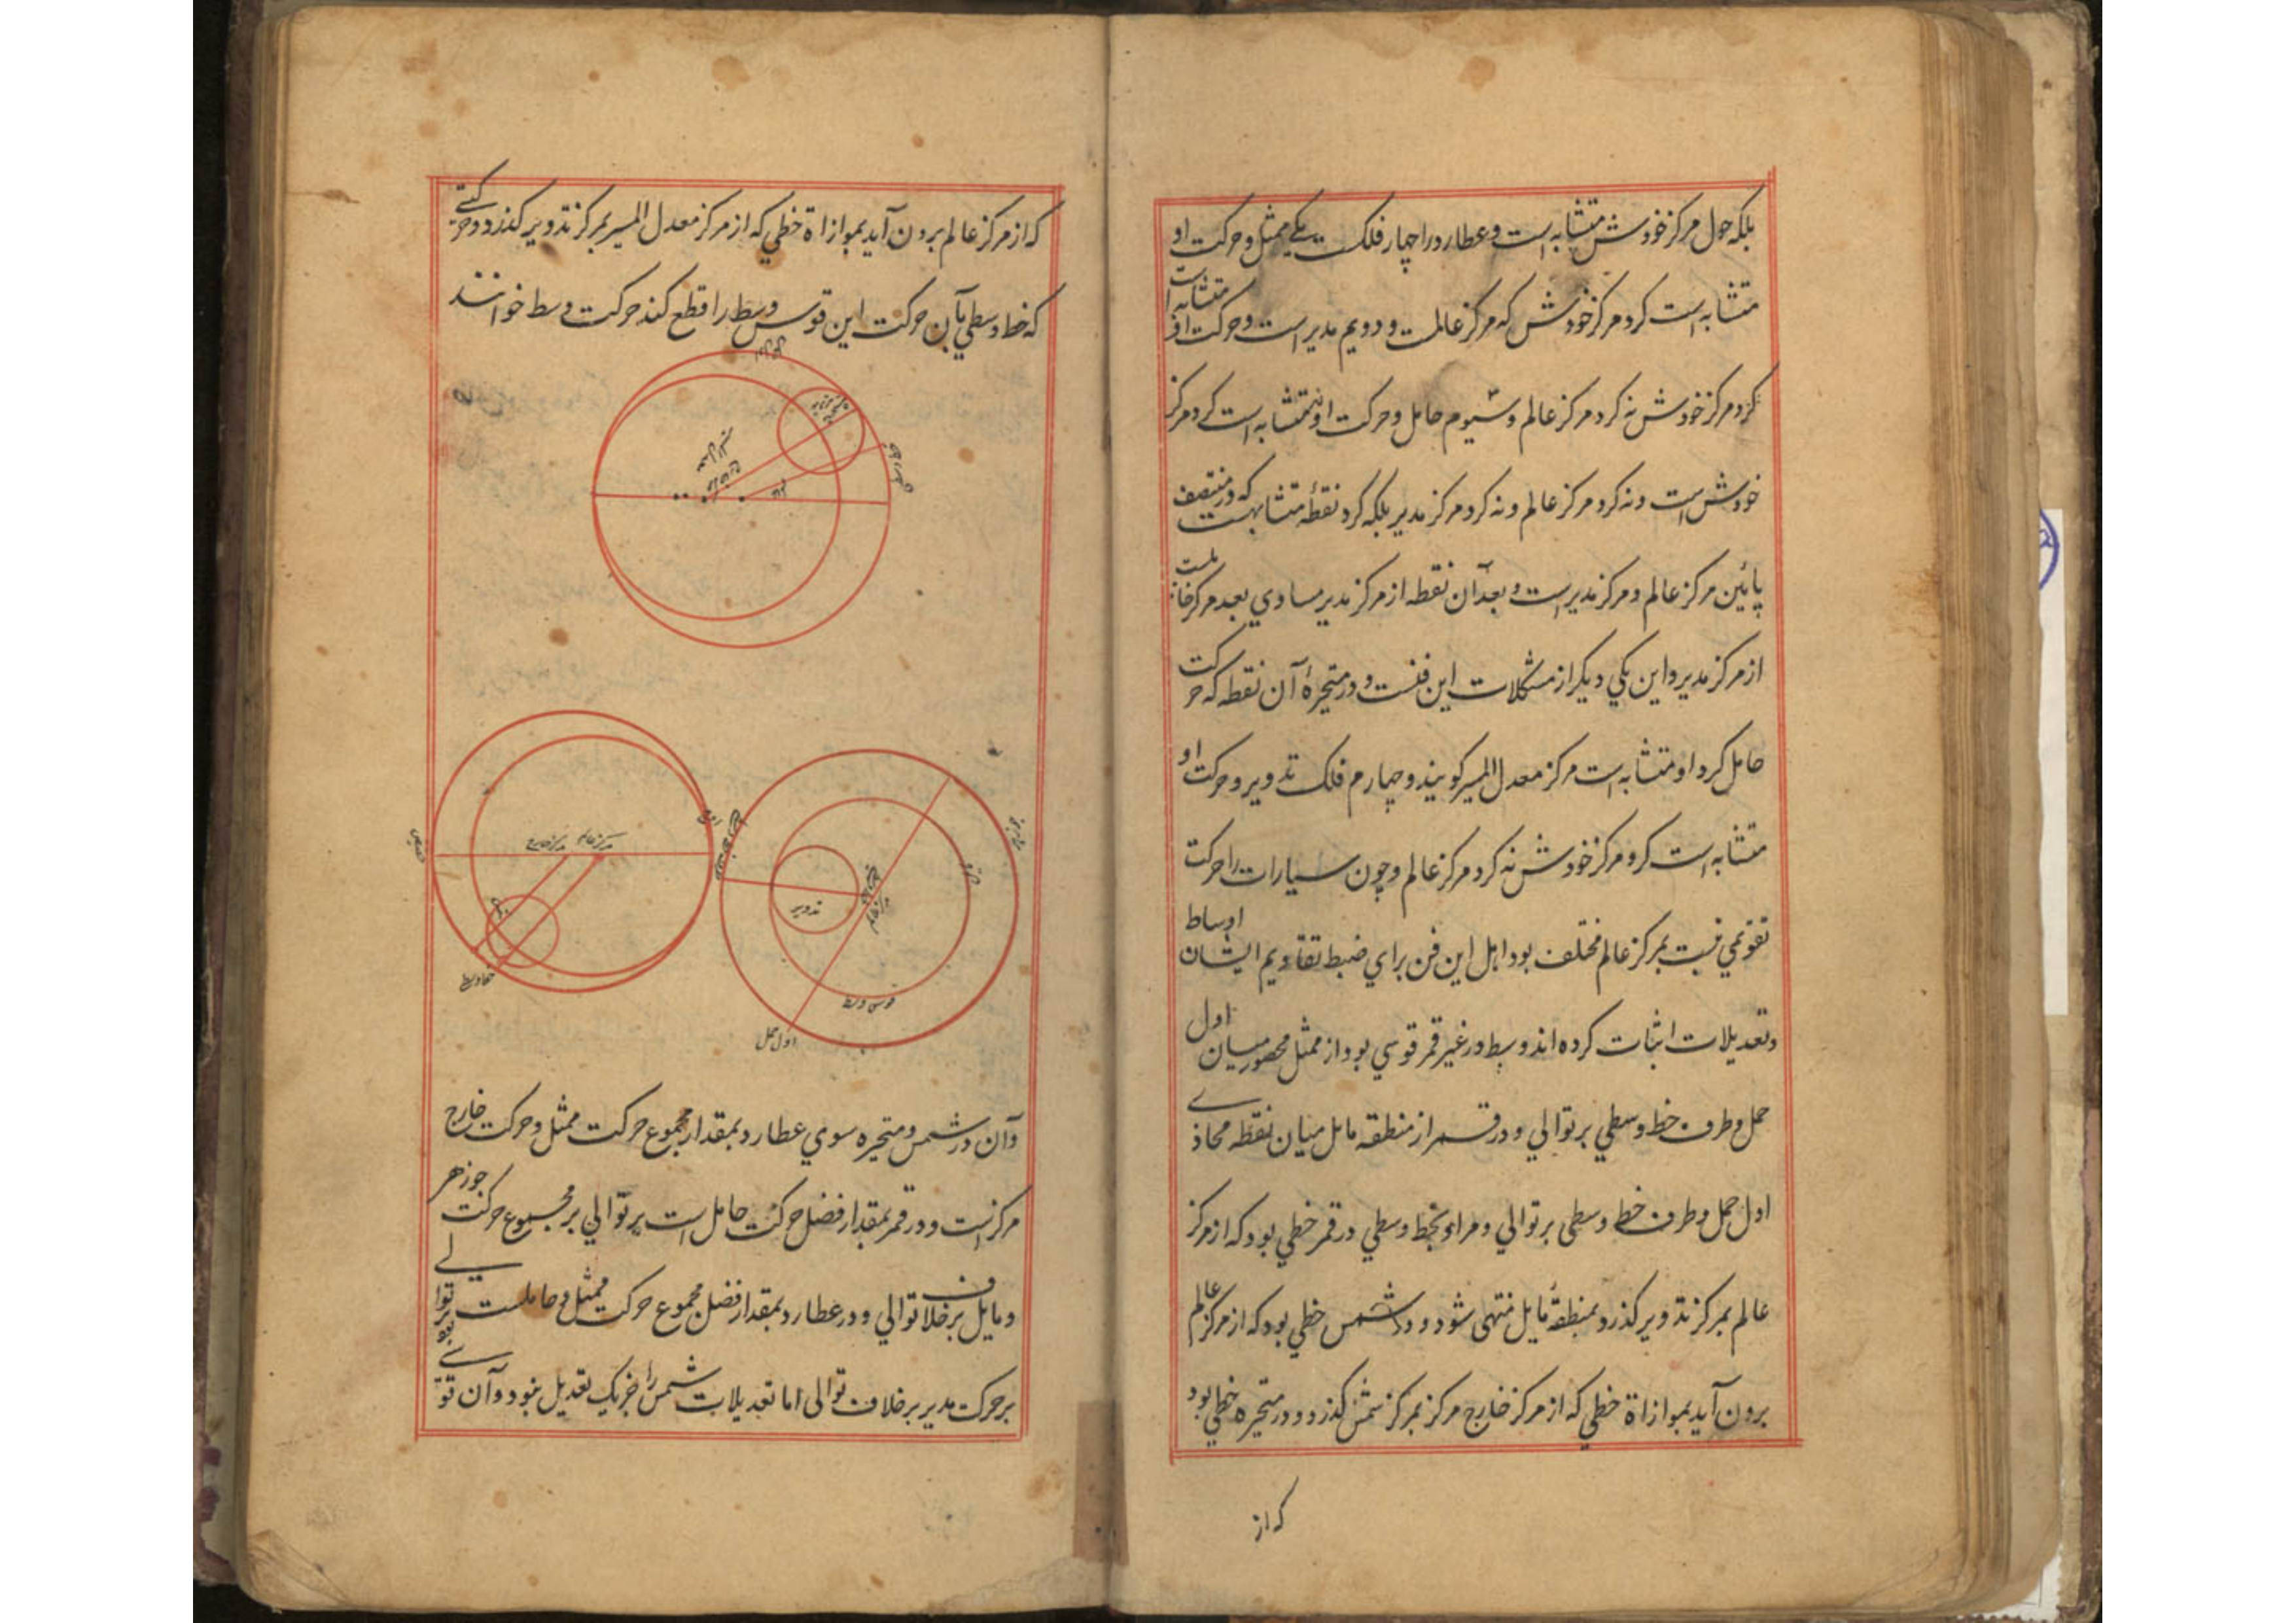 بلکه حول مرکز خودش متشابه است و عطارد را چهار فلک ست یکی ممثل و حرکت او
متشابه است کرد مرکز خودش که مرکز عالمست و دویم مدیر است و حرکت او متشابه است
کرد مرکز خودش نه کرد مرکز عالم و سیوم حامل و حرکت او نه متشابه است کرد مرکز
خودش است و نه کرد مرکز عالم و نه کرد مرکز مدیر بلکه کرد نقطهٔ متشابهست که در منتصف
پائین مرکز عالم و مرکز مدیر است و بعد آن نقطه از مرکز مدیر مساوي بعد مرکز حاملست
از مرکز مدیر و این یکي دیکر از مشکلات این فنست و در متحیرهٔ آن نقطه که حرکت
حامل کرد او متشابه است مرکز معدل المسیر کویند و چهارم فلک تدویر و حرکت او
متشابه است کرد مرکز خودش نه کرد مرکز عالم و چون سیارات را حرکت
تقویمي نسبت بمرکز عالم مختلف بود اهل این فن براي ضبط تقاویم ایشان اوساط
و تعدیلات اثبات کرده اند وسط در غیر قمر قوسي بود از ممثل محصور میان اول
حمل و طرف خط وسطي بر توالي و در قمر از منطقه مایل میان نقطه محاذے
اول حمل و طرف خط وسطی بر توالي و مراد بخط وسطي در قمر خطي بود که از مرکز
عالم بمرکز تدویر کذرد بمنطقهٔ مایل منتهی شود و در شمس خطي بود که از مرکز عالم
برون آید بموازاة خطي که از مرکز خارج مرکز بمرکز شمس کذرد و در متحیره خطي بود
که از
که از مرکز عالم برون آید بموازاة خطي که از مرکز معدل المسیر بمرکز تدویر کذرد و حرکتے
که خط وسطي بآن حرکت این قوس وسط را قطع کند حرکت وسط خوانند
مرکز عالم
مرکز خارج
تدویر
خط وسط
قوس وسط
اول حمل
وآن در شمس و متحیره سوي عطارد بمقدار مجموع حرکت ممثل و حرکت خارج
مرکزست و در قمر بمقدار فضل حرکت حامل است بر توالي بر مجموع حرکت جوزهر
و مایل بر خلاف توالي و در عطارد بمقدار فضل مجموع حرکت ممثل و حاملست بر توالے
بر حرکت مدیر بر خلاف توالی اما تعدیلات شمس را جز یک تعدیل نبود و آن